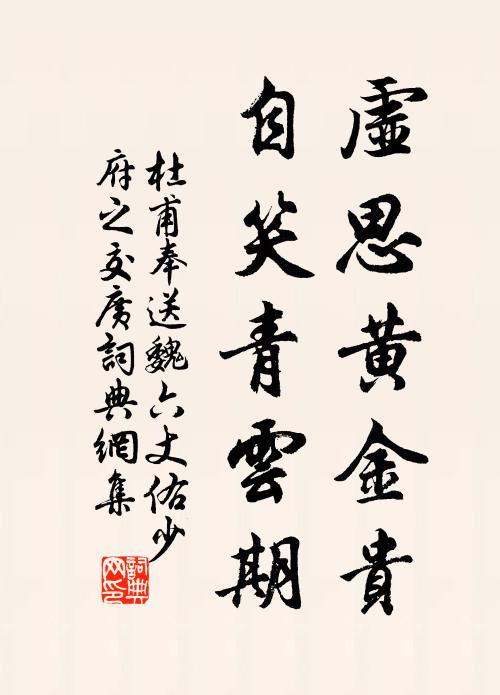 虛思黃金貴
自笑青雲期
杜甫奉送魏六丈佑少
府之交廣詞典網集
詞典网印